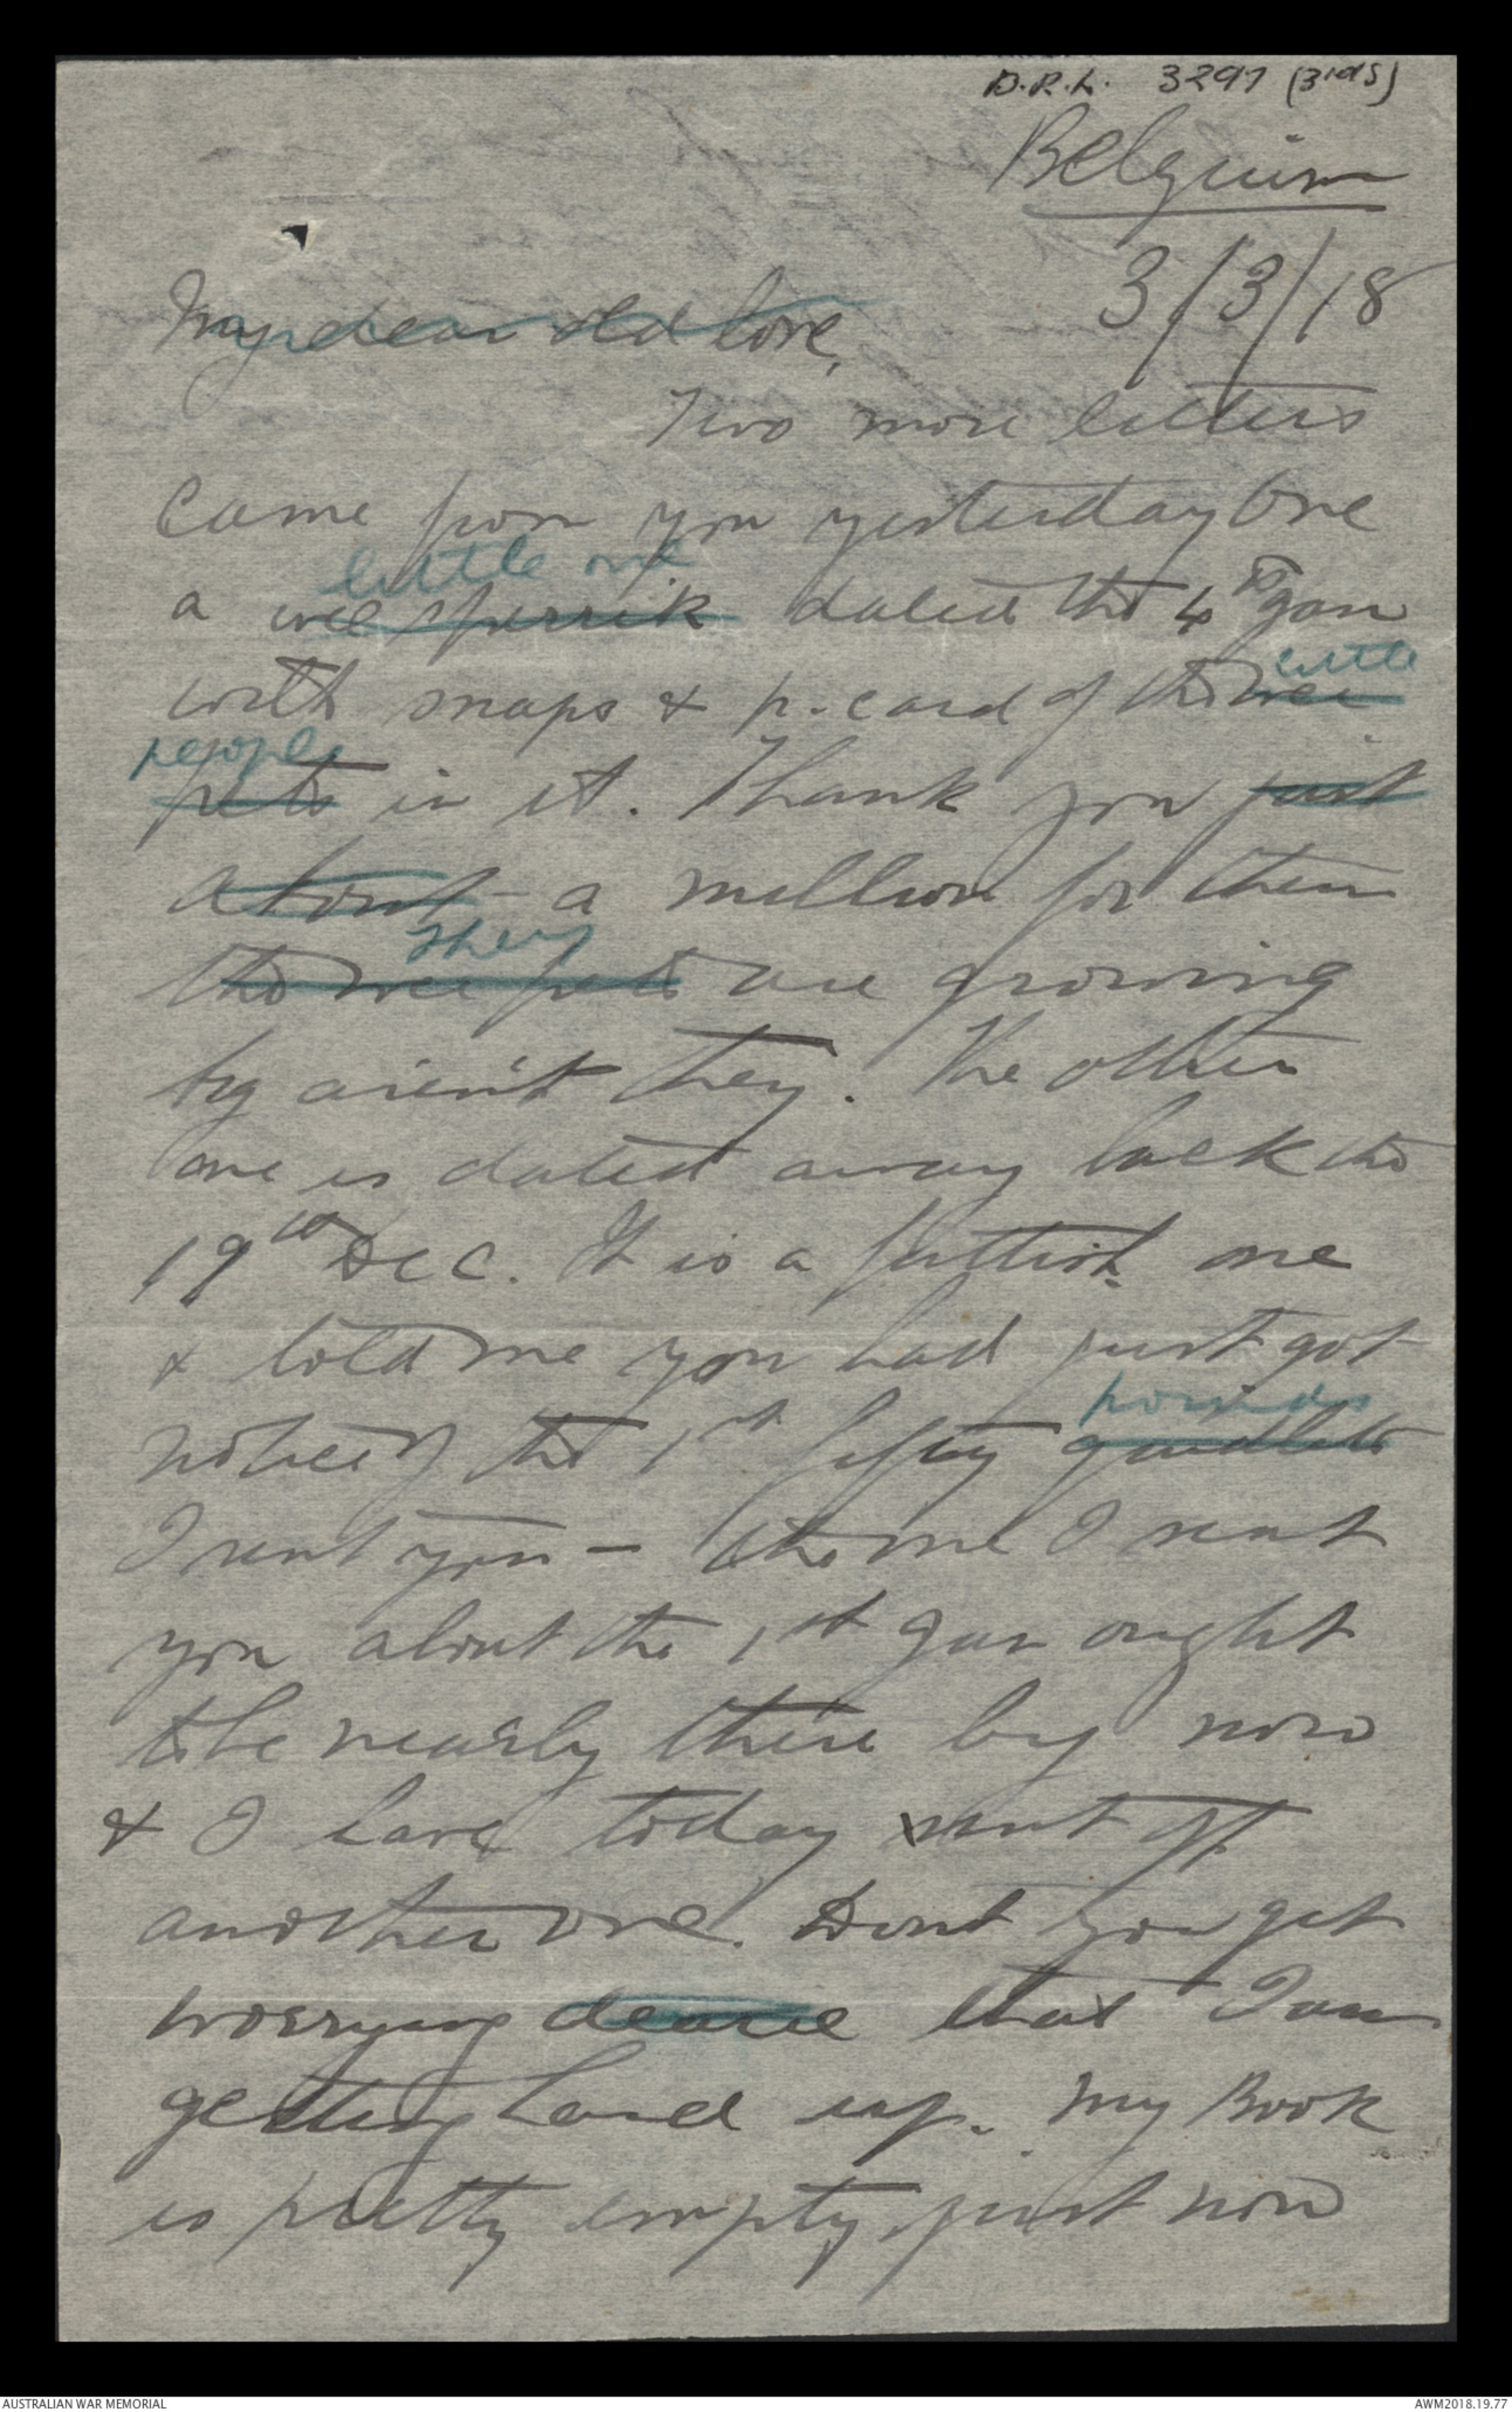 D.R.L. 3297 (3rds)
Belguim
3/3/18
My dear old love,
Two more letters
came from you yesterday One
little one
a wee dated the 4th Jan
little
with snaps & p.card of the wee
people
pets in it. Thank you just
about a million for them
They
the wee pets are growing
big aren't they. The other
one is dated away back the
19th Dec. It is a fattish one
& told me you had just got
pounds
notice of the 1st fifty
I sent you - the one I sent
you about the 1st Jan ought
to be nearly there by now
& I have today sent off
another one. Dont you get
worrying dearie that I am
getting hard up. My Book
is pretty empty just now
AUSTRALIAN WAR MEMORIAL
AWM2018.19.77